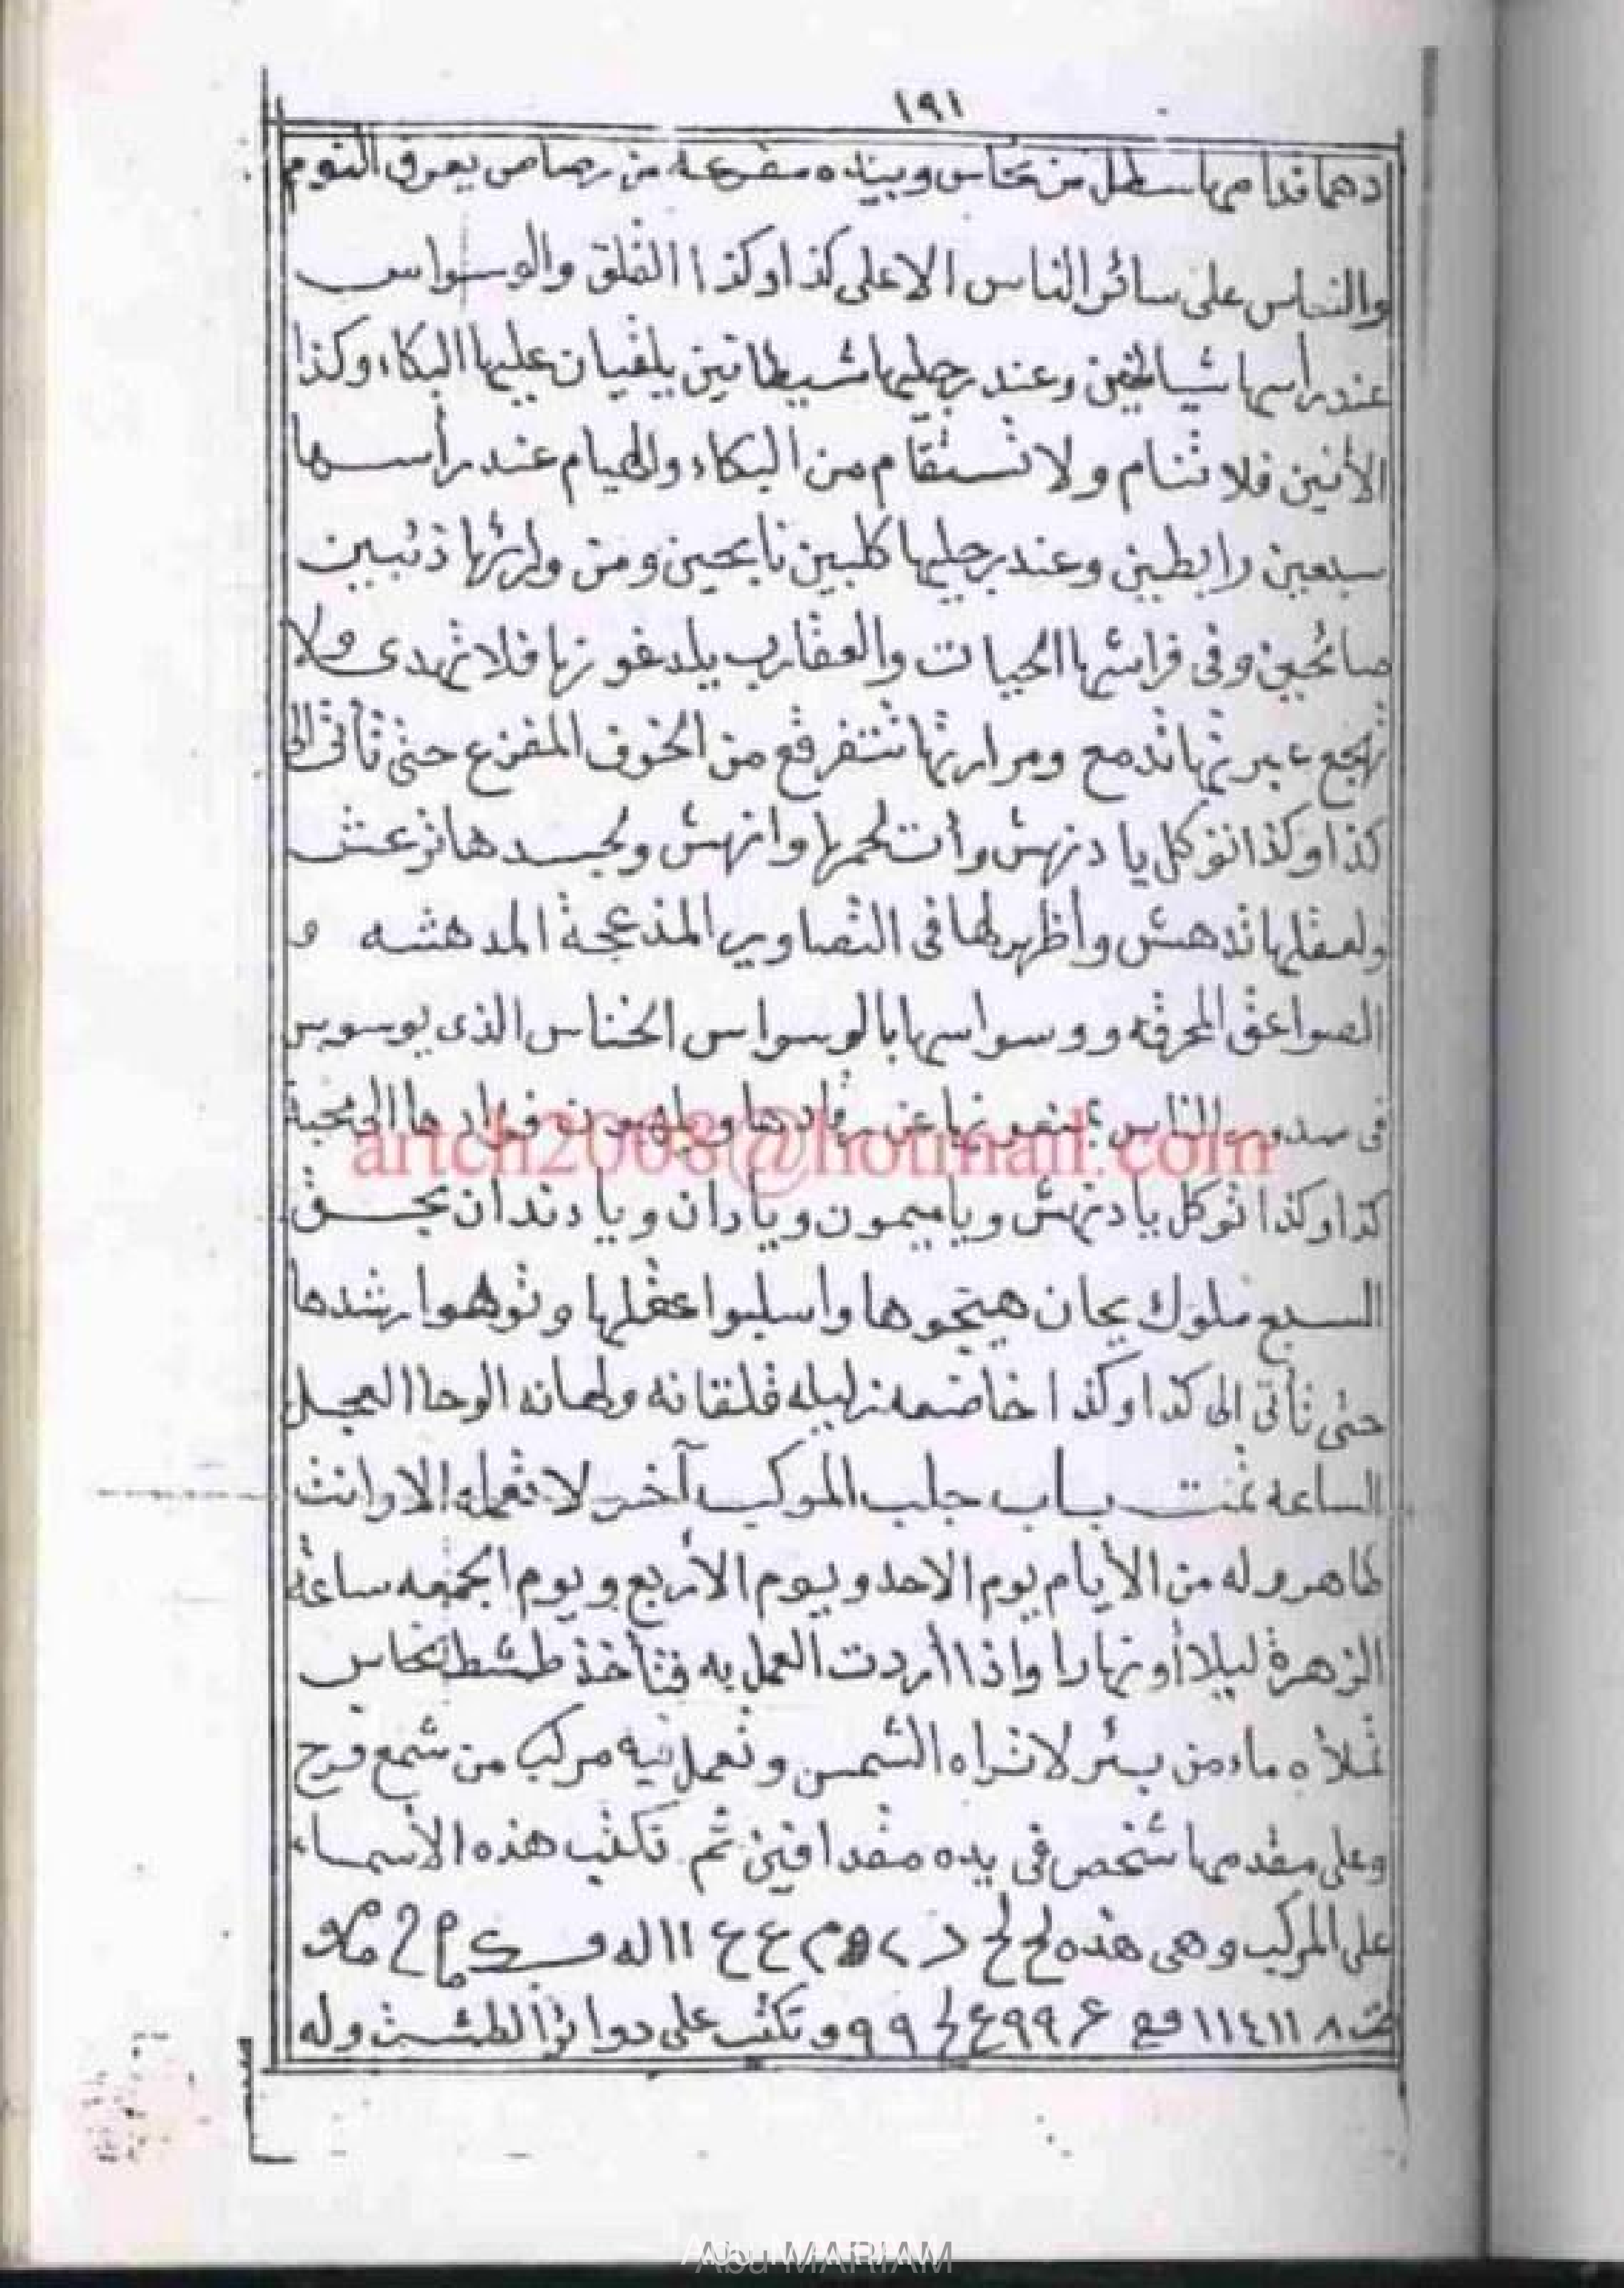 ١٩١
دهما قدامها سطل من نحاس وبيده مقرعه من رصاص يعرق النوم
والنعاس على سائر الناس الا على كذا وكذا القلق والوسواس
عند راسها شياطين وعند رجليها شيطانين يلقيان عليها البكاء وكذا
الأنين فلا تنام ولا تستقام من البكاء والهيام عند رأسها
سبعين رابطين وعند رجليها كلبين نابحين ومن ورائها ذئبين
صائحين وفى فراشها الحيات والعقارب يلدغونها فلا تهدى ولا
تهجع عبرتها تدمع ومرارتها تتفرقع من الخوف المفزع حتى تأتى الى
كذا وكذا توكل يا دنهش وأت لحمها وانهش ولجسدها ترعش
ولعقلها تدهش وأظهر لها فى التصاوير المذعجة المدهشه و
الصواعق المحرقه ووسواسها بالوسواس الخناس الذى يوسوس
فى صدور الناس يمنعونها عن رقادها ويلهبون فوادها الى محبة
كذا وكذا توكل يا دنهش ويا ميمون ويا ران ويا دندان بحق
السبع ملوك يجان هيجوها واسلبوا عقلها وتوهوا رشدها
حتى تأتى الى كذا وكذا خاضعه ذليله قلقانه ولهانه الوحا العجل
الساعه تمت باب جلب المركب آخر لا تعمله الا وانت
طاهر وله من الأيام يوم الاحد ويوم الأربع ويوم الجمعه ساعة
الزهرة ليلا أو نهارا واذا أردت العمل به فتأخذ طشط نحاس
تملأه ماء من بئر لا تراه الشمس وتعمل فيه مركب من شمع فرح
وعلى مقدمها شخص فى يده مقدافين ثم تكتب هذه الأسماء
على المركب وهى هذه لح لح د ع ع ١١ له
٨ ١١٤١١ ٩٩ ع لح ٩٩ وتكتب على دوائر الطشت وله
artch2008@hotmail.com
Abu MARIAM